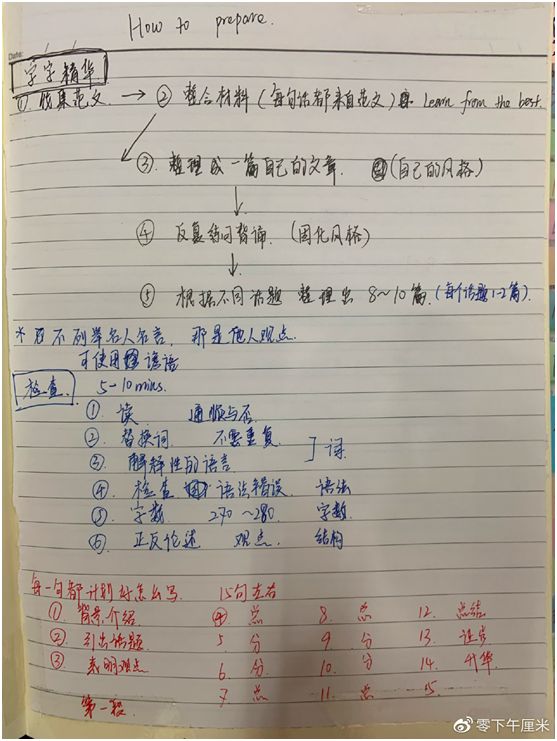 How to prepare.
Date:
字字精华
① 收集范文 → ② 整合材料 (每句话都来自范文) Learn from the best.
③ 整理成一篇自己的文章. (自己的风格)
④ 反复练习背诵. (固化风格)
⑤ 根据不同话题 整理出 8~10篇. (每个话题1-2篇).
* 不列举名人名言, 那是他人观点.
可使用 谚语
检查. 5-10 mins.
① 读 通顺与否.
② 替换词 不要重复.
③ 解释性的语言 ] 词.
④ 检查 语法错误. 语法
⑤ 字数 270~280. 字数.
⑥ 正反论述 观点. 结构
每一句都计划好怎么写. 15句左右
① 背景介绍 ④ 总 8. 总 12. 总结
② 引出话题 5 分 9 分 13.
③ 表明观点 6 分 10. 分 14. 升华
7 总 11. 总 15.
第一段
零下午厘米